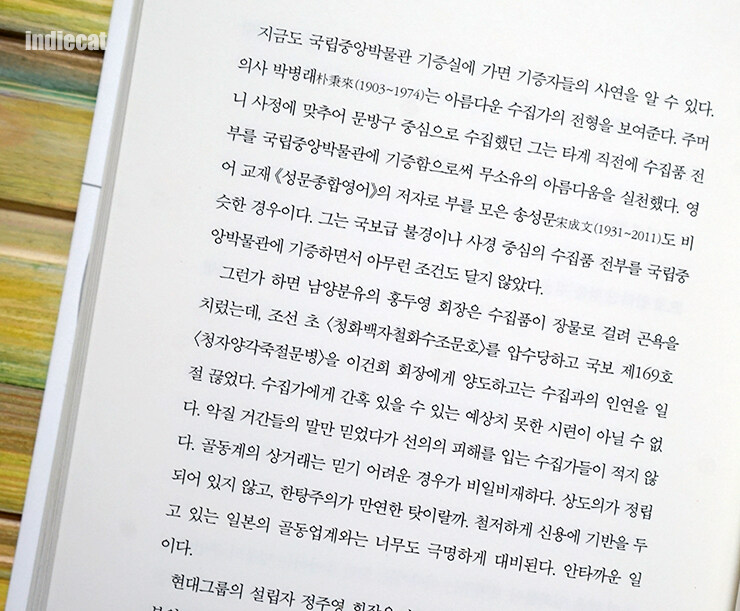 indiecat
지금도 국립중앙박물관 기증실에 가면 기증자들의 사연을 알 수 있다.
의사 박병래朴秉來(1903~1974)는 아름다운 수집가의 전형을 보여준다. 주머
니 사정에 맞추어 문방구 중심으로 수집했던 그는 타계 직전에 수집품 전
부를 국립중앙박물관에 기증함으로써 무소유의 아름다움을 실천했다. 영
어 교재 《성문종합영어》의 저자로 부를 모은 송성문宋成文(1931~2011)도 비
슷한 경우이다. 그는 국보급 불경이나 사경 중심의 수집품 전부를 국립중
앙박물관에 기증하면서 아무런 조건도 달지 않았다.
그런가 하면 남양분유의 홍두영 회장은 수집품이 장물로 걸려 곤욕을
치렀는데, 조선 초 〈청화백자철화수조문호〉를 압수당하고 국보 제169호
〈청자양각죽절문병〉을 이건희 회장에게 양도하고는 수집과의 인연을 일
절 끊었다. 수집가에게 간혹 있을 수 있는 예상치 못한 시련이 아닐 수 없
다. 악질 거간들의 말만 믿었다가 선의의 피해를 입는 수집가들이 적지 않
다. 골동계의 상거래는 믿기 어려운 경우가 비일비재하다. 상도의가 정립
되어 있지 않고, 한탕주의가 만연한 탓이랄까. 철저하게 신용에 기반을 두
고 있는 일본의 골동업계와는 너무도 극명하게 대비된다. 안타까운 일
이다.
현대그룹의 설립자 정주영 회장은